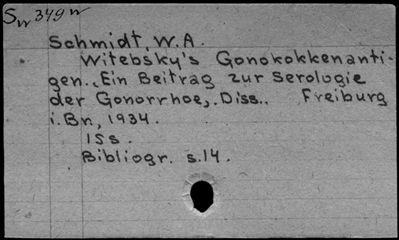 Sw 349 w
Schmidt, W.A.
Witebsky's Gonokokkenanti-
gen. „Ein Beitrag zur Serologie
der Gonorrhoe„. Diss.. Freiburg
i.Bn, 1934.
15s.
Bibliogr. s.14.